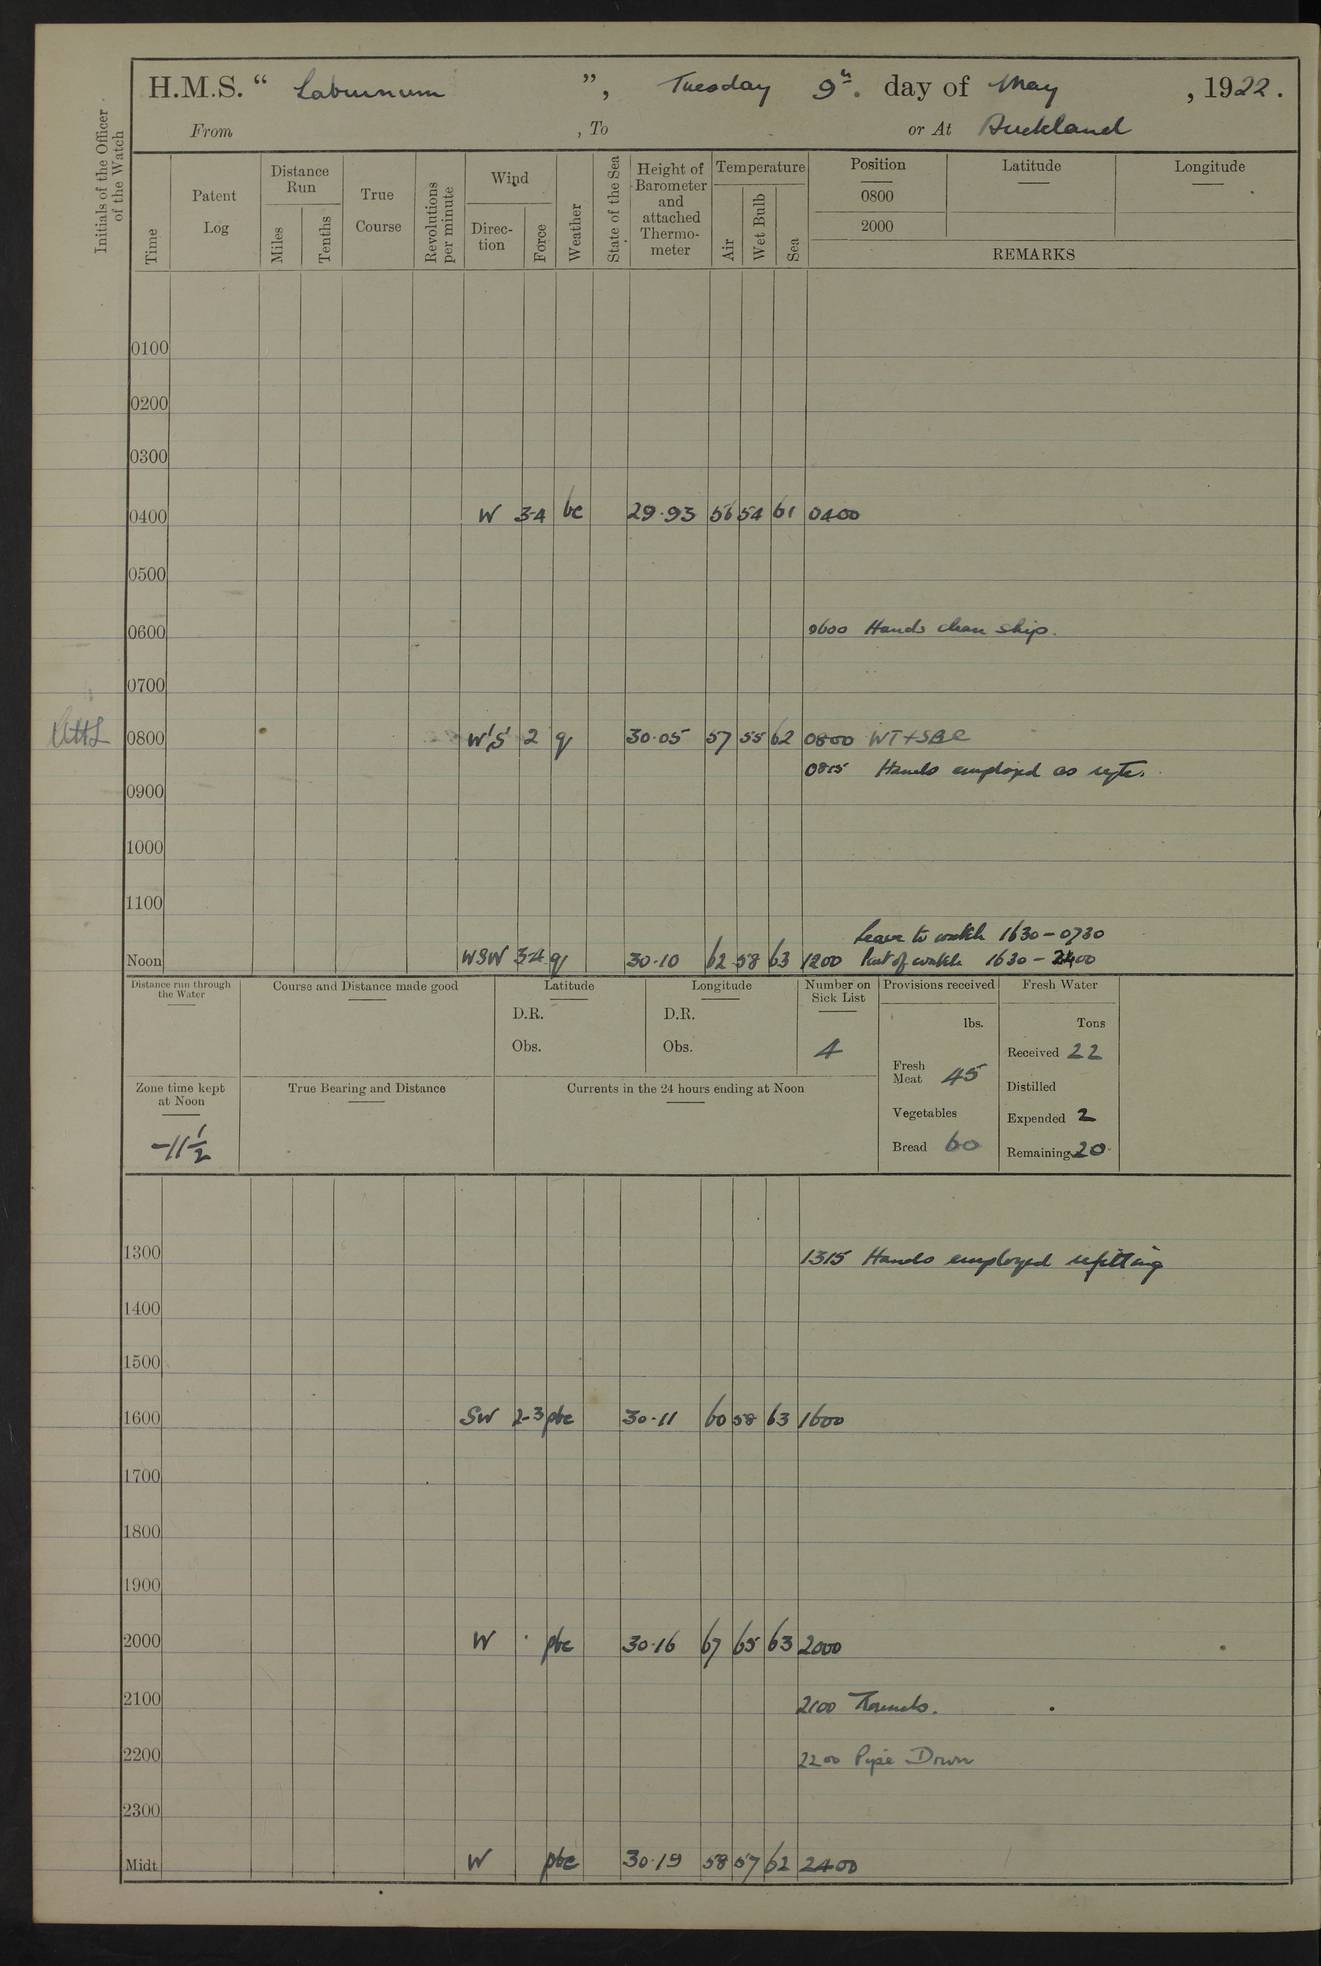 H.M.S. “ Laburnum ”, Tuesday 9th. day of May , 1922.
From , To or At Auckland
Initials of the Officer of the Watch
Time
Patent Log
Distance Run
Miles
Tenths
True Course
Revolutions per minute
Wind
Direction
Force
Weather
State of the Sea
Height of Barometer and attached Thermometer
Temperature
Air
Wet Bulb
Sea
Position Latitude Longitude
0800
2000
REMARKS
0100
0200
0300
0400 W 3-4 bc 29.93 56 54 61 0400
0500
0600 0600 Hands clean ship.
0700
0800 W'S' 2 q 30.05 57 55 62 0800 WT+SBE
0815 Hands employed as reqte.
0900
1000
1100
Leave to watch 1630-0730
Noon WSW 3-4 q 30.10 62 58 63 1200 Part of watch 1630-2400
Distance run through the Water
Course and Distance made good
Latitude
D.R.
Obs.
Longitude
D.R.
Obs.
Number on Sick List
4
Provisions received
lbs.
Fresh Meat 45
Vegetables
Bread 60
Fresh Water
Tons
Received 22
Distilled
Expended 2
Remaining 20
Zone time kept at Noon
-11 1/2
True Bearing and Distance
Currents in the 24 hours ending at Noon
1300 1315 Hands employed refitting
1400
1500
1600 SW 2-3 pbc 30.11 60 58 63 1600
1700
1800
1900
2000 W pbc 30.16 67 65 63 2000
2100 2100 Rounds.
2200 2200 Pipe Down
2300
Midt W pbc 30.19 58 57 62 2400